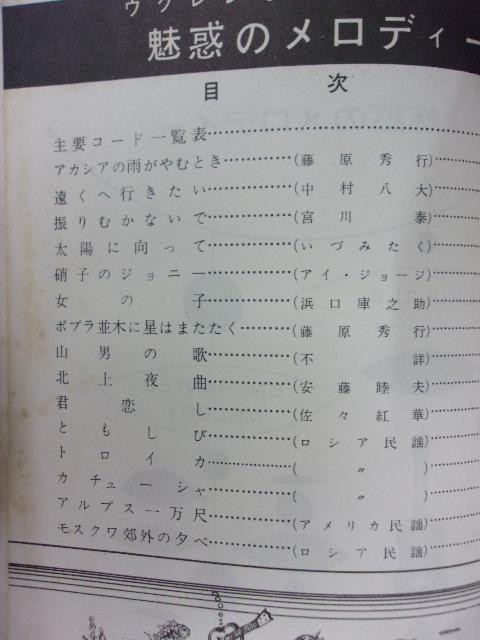 魅惑のメロディー
目次
主要コード一覧表
アカシアの雨がやむとき(藤原秀行)
遠くへ行きたい(中村八大)
振りむかないで(宮川泰)
太陽に向って(いづみたく)
硝子のジョニー(アイ・ジョージ)
女の子(浜口庫之助)
ポプラ並木に星はまたたく(藤原秀行)
山男の歌(不詳)
北上夜曲(安藤睦夫)
君恋し(佐々紅華)
ともしび(ロシア民謡)
トロイカ(〃)
カチューシャ(〃)
アルプス一万尺(アメリカ民謡)
モスクワ郊外の夕べ(ロシア民謡)